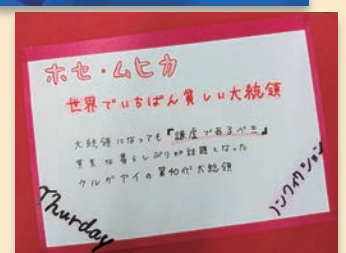 ホセ・ムヒカ
世界でいちばん貧しい大統領
大統領になっても『謙虚であるべき』
質素な暮らしぶりが話題となった
ウルグアイの第40代大統領
Thurday
ノンフィクション